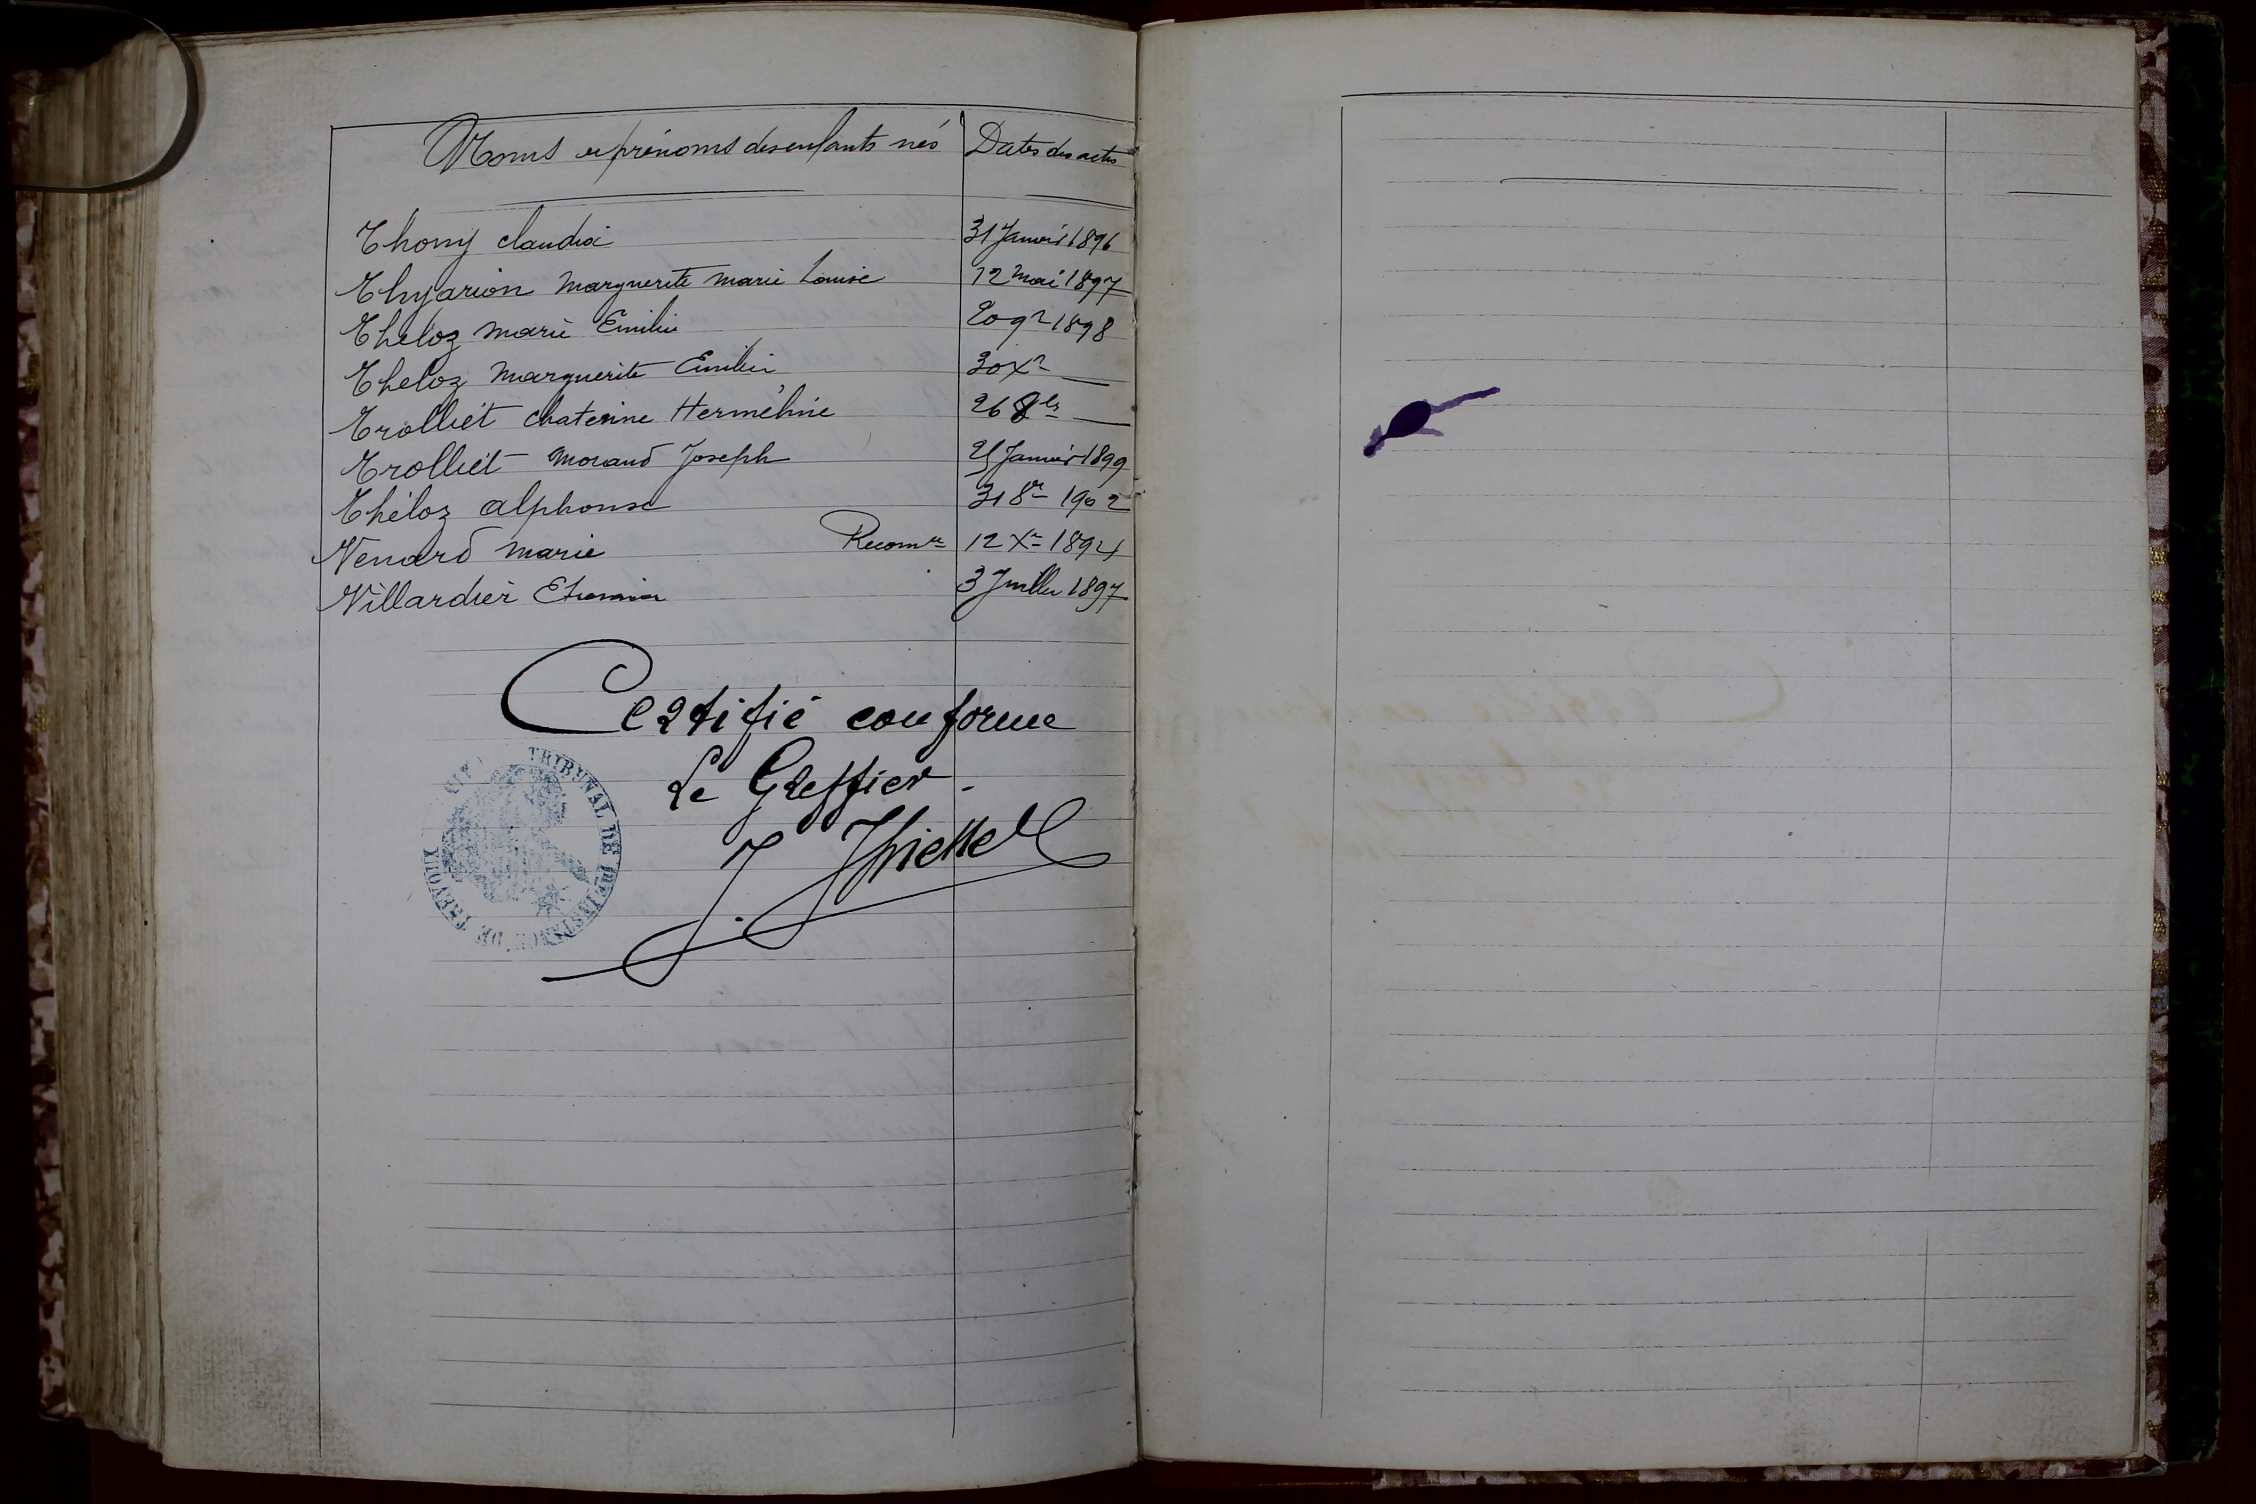 Noms et prénoms des enfants nés Dates des actes
Thomy Claudia 31 Janvier 1896
Thyarion Marguerite Marie Louise 12 Mai 1897
Théloz Marie Emilie 20 9re 1898
Theloz Marguerite Emilie 30 Xre —
Trolliet Chaterine Herméline 26 8bre —
Trolliet Morand Joseph 25 Janvier 1899
Théloz Alphonse 31 8re 1902
Venard Marie Reconce 12 Xre 1894
Villardier 3 Juillet 1897
Certifié conforme
Le Greffier.
TRIBUNAL DE 1RE INSTANCE DE TREVOUX